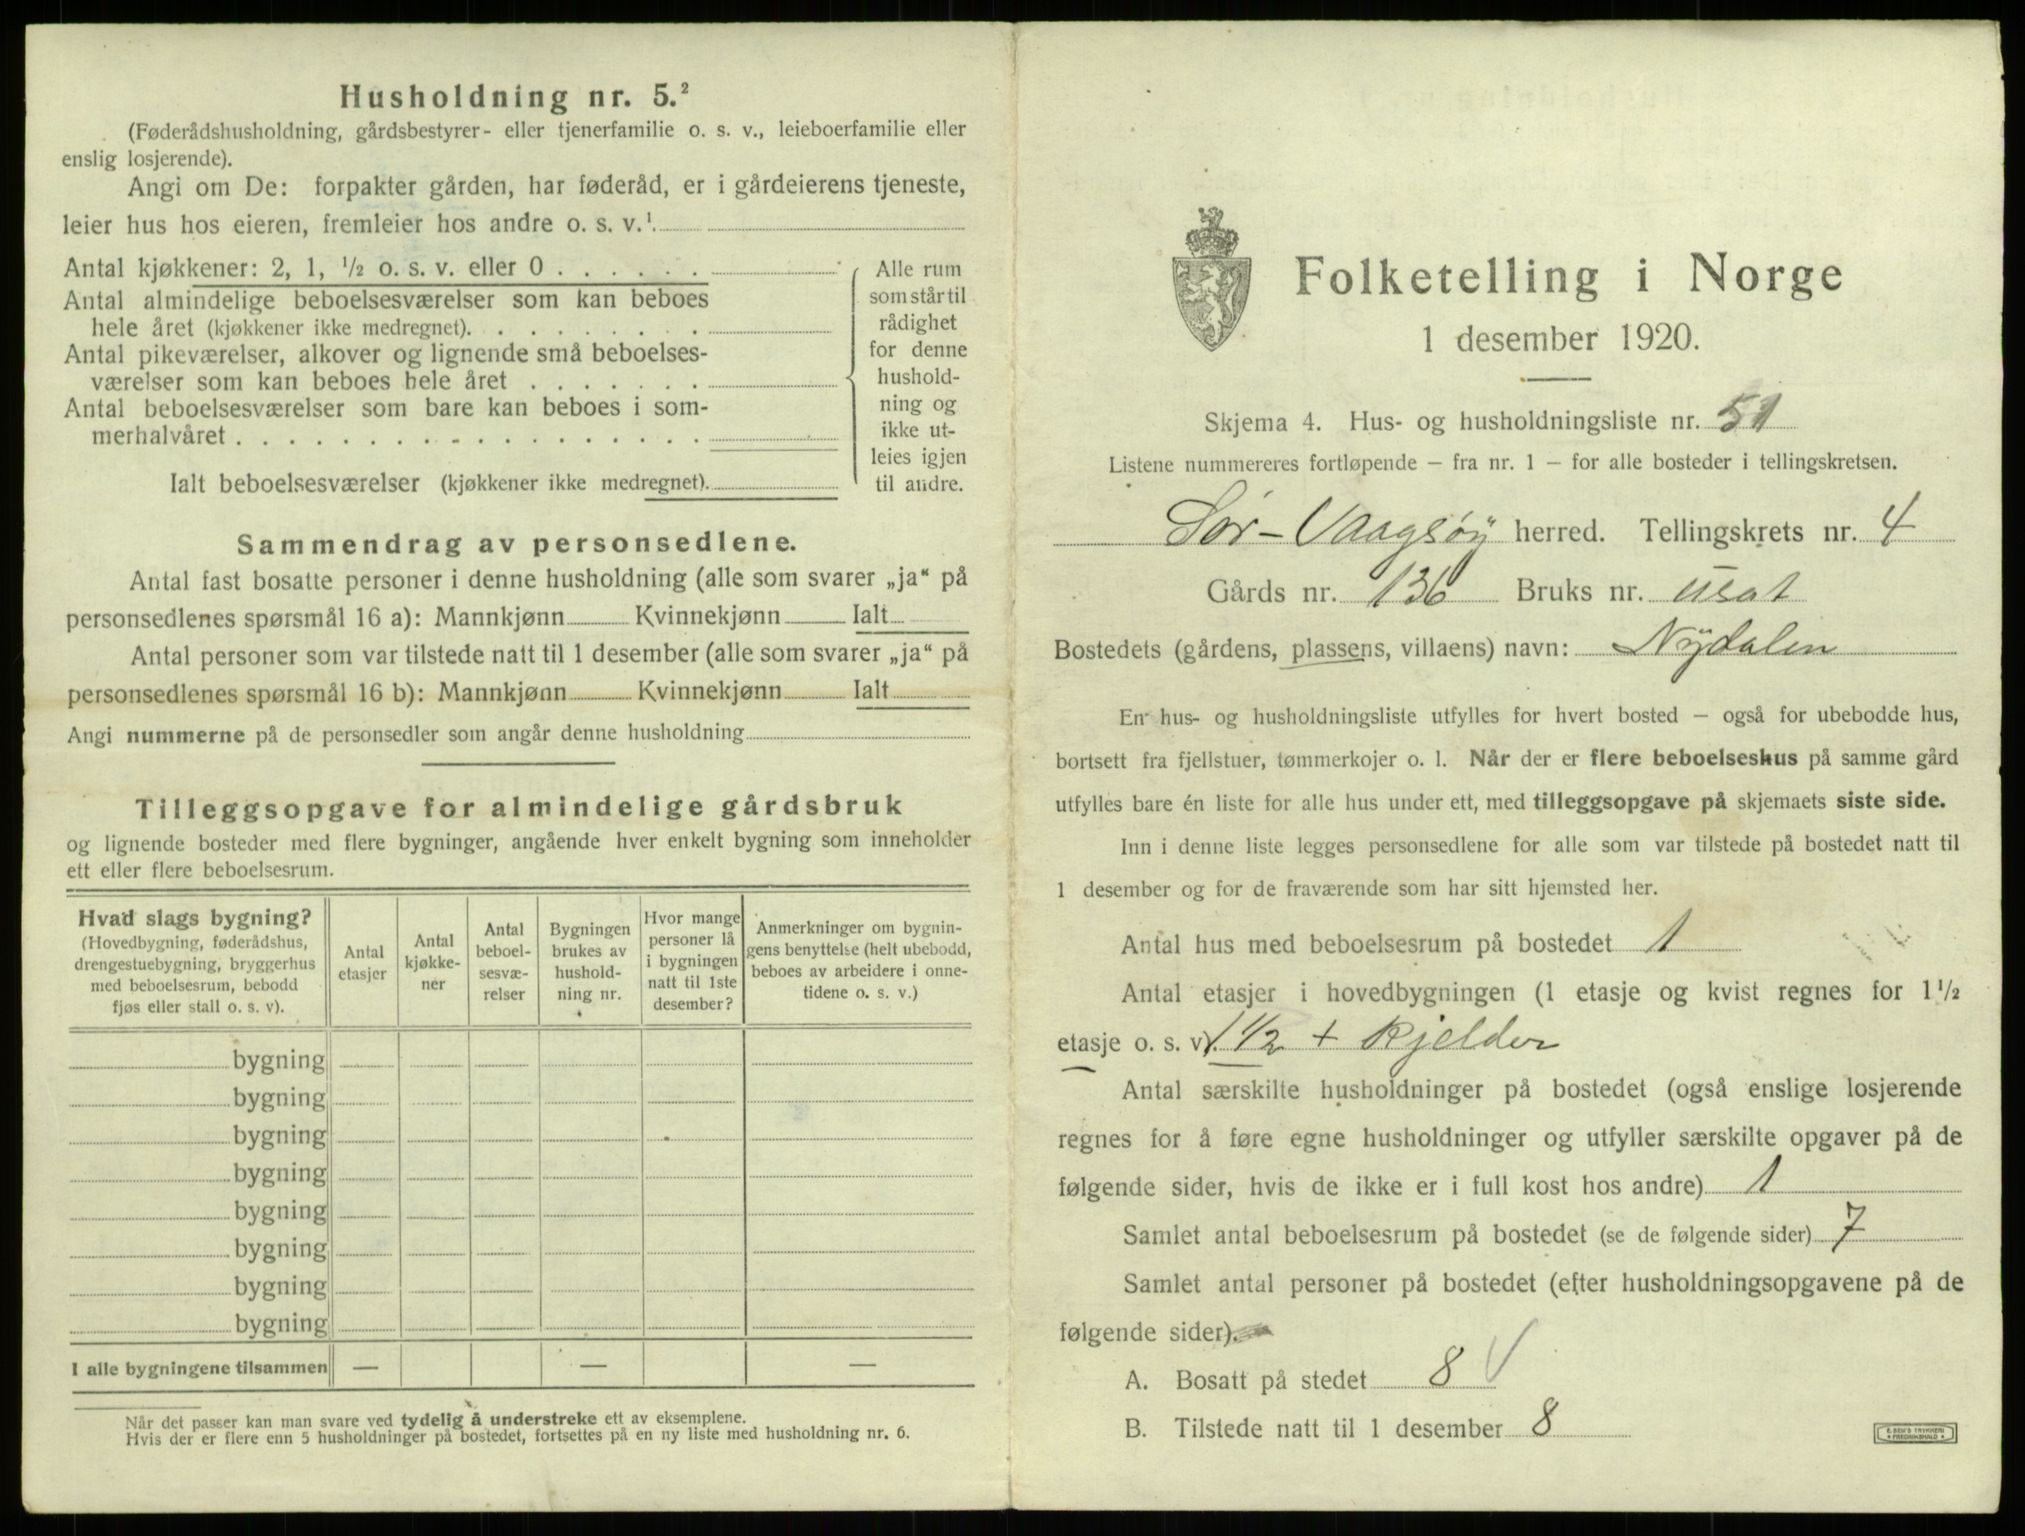 Husholdning nr. 5.²
(Føderådshusholdning, gårdsbestyrer- eller tjenerfamilie o. s. v., leieboerfamilie eller
enslig losjerende).
Angi om De: forpakter gården, har føderåd, er i gårdeierens tjeneste,
leier hus hos eieren, fremleier hos andre o. s. v.¹
Antal kjøkkener: 2, 1, ½ o. s. v. eller 0
Antal almindelige beboelsesværelser som kan beboes
hele året (kjøkkener ikke medregnet).
Antal pikeværelser, alkover og lignende små beboelses-
værelser som kan beboes hele året
Antal beboelsesværelser som bare kan beboes i som-
merhalvåret
Ialt beboelsesværelser (kjøkkener ikke medregnet).
Alle rum
som står til
rådighet
for denne
hushold-
ning og
ikke ut-
leies igjen
til andre.
Sammendrag av personsedlene.
Antal fast bosatte personer i denne husholdning (alle som svarer „ja“ på
personsedlenes spørsmål 16 a): Mannkjønn Kvinnekjønn Ialt
Antal personer som var tilstede natt til 1 desember (alle som svarer „ja“ på
personsedlenes spørsmål 16 b): Mannkjønn Kvinnekjønn Ialt
Angi nummerne på de personsedler som angår denne husholdning
Tilleggsopgave for almindelige gårdsbruk
og lignende bosteder med flere bygninger, angående hver enkelt bygning som inneholder
ett eller flere beboelsesrum.
Hvad slags bygning?
(Hovedbygning, føderådshus,
drengestuebygning, bryggerhus
med beboelsesrum, bebodd
fjøs eller stall o. s. v).
Antal
etasjer
Antal
kjøkke-
ner
Antal
beboel-
sesvæ-
relser
Bygningen
brukes av
hushold-
ning nr.
Hvor mange
personer lå
i bygningen
natt til 1ste
desember?
Anmerkninger om bygnin-
gens benyttelse (helt ubebodd,
beboes av arbeidere i onne-
tidene o. s. v.)
bygning
bygning
bygning
bygning
bygning
bygning
bygning
bygning
I alle bygningene tilsammen — — —
Når det passer kan man svare ved tydelig å understreke ett av eksemplene.
Hvis der er flere enn 5 husholdninger på bostedet, fortsettes på en ny liste med husholdning nr. 6.
Folketelling i Norge
1 desember 1920.
Skjema 4. Hus- og husholdningsliste nr. 51
Listene nummereres fortløpende – fra nr. 1 – for alle bosteder i tellingskretsen.
Sør-Vaagsøy herred. Tellingskrets nr. 4
Gårds nr. 136 Bruks nr. usat
Bostedets (gårdens, plassens, villaens) navn: Nydalen
En hus- og husholdningsliste utfylles for hvert bosted – også for ubebodde hus,
bortsett fra fjellstuer, tømmerkojer o. l. Når der er flere beboelseshus på samme gård
utfylles bare én liste for alle hus under ett, med tilleggsopgave på skjemaets siste side.
Inn i denne liste legges personsedlene for alle som var tilstede på bostedet natt til
1 desember og for de fraværende som har sitt hjemsted her.
Antal hus med beboelsesrum på bostedet 1
Antal etasjer i hovedbygningen (1 etasje og kvist regnes for 1½
etasje o. s. v). 1 1/2 + Kjelder
Antal særskilte husholdninger på bostedet (også enslige losjerende
regnes for å føre egne husholdninger og utfyller særskilte opgaver på de
følgende sider, hvis de ikke er i full kost hos andre) 1
Samlet antal beboelsesrum på bostedet (se de følgende sider) 7
Samlet antal personer på bostedet (efter husholdningsopgavene på de
følgende sider).
A. Bosatt på stedet 8 V
B. Tilstede natt til 1 desember 8
E. SEM'S TRYKKERI
FREDRIKSHALD